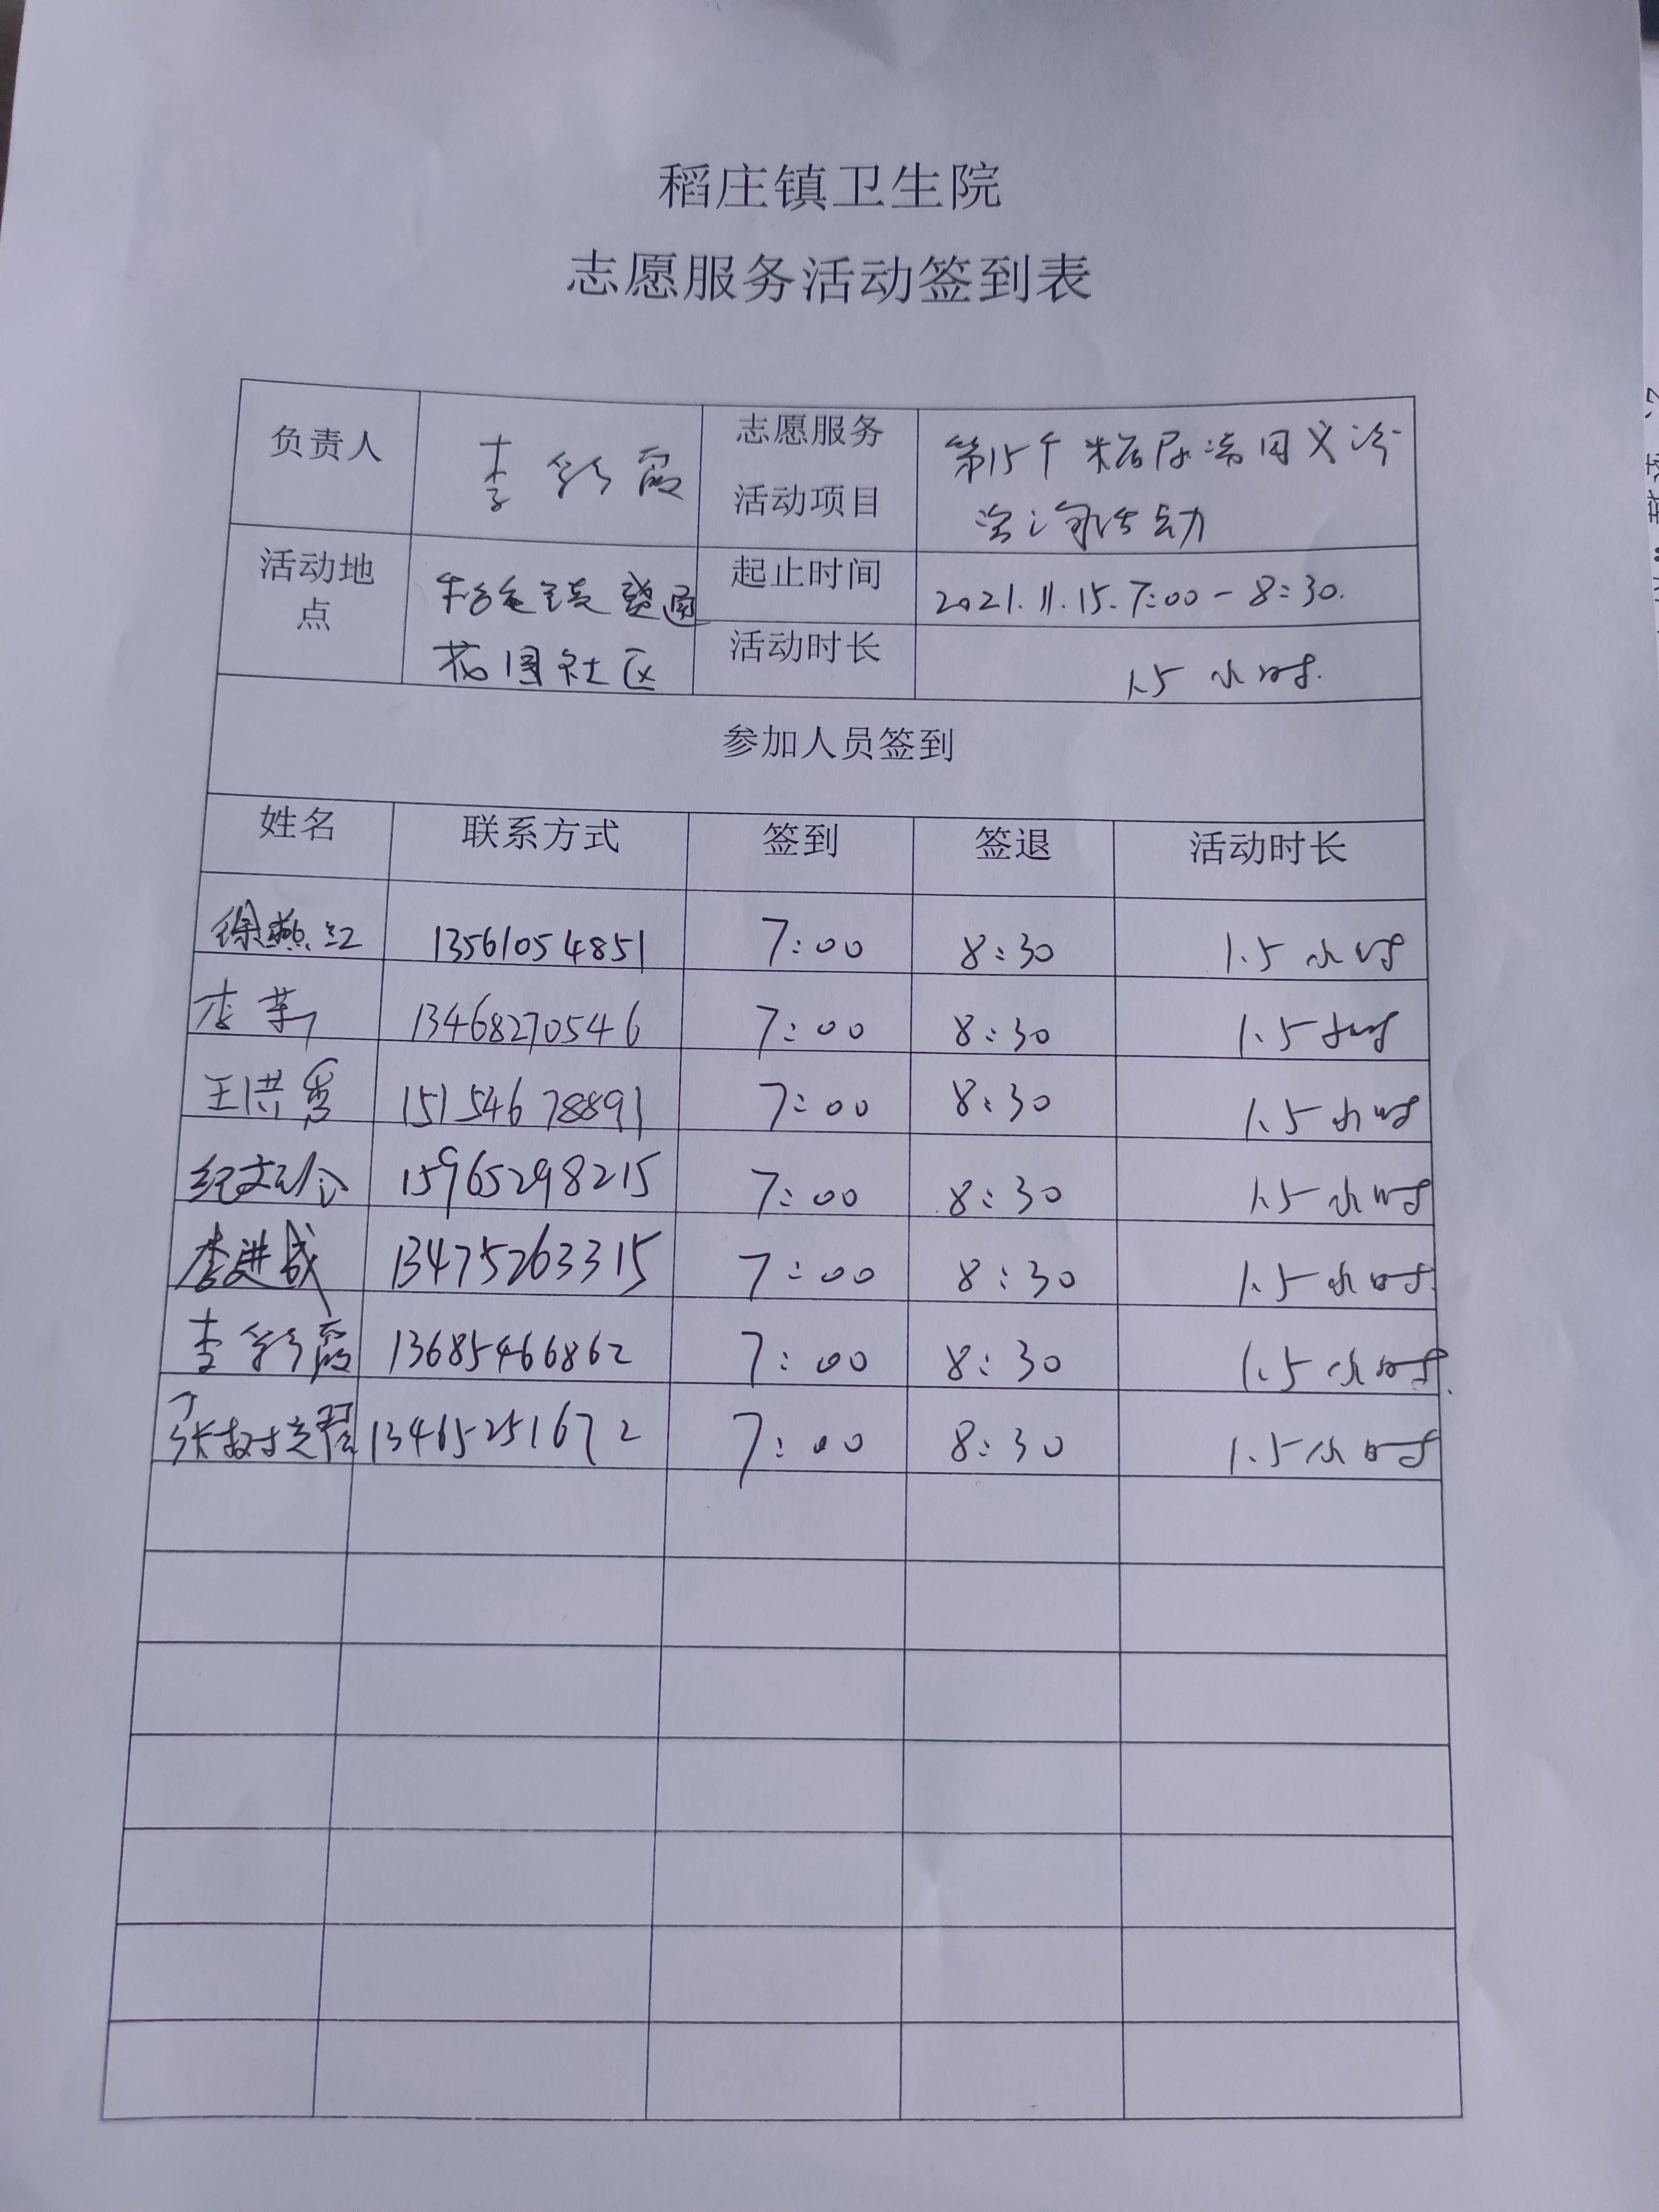 稻庄镇卫生院
志愿服务活动签到表
负责人 李彩霞 志愿服务活动项目 第15个糖尿病日义诊
咨询活动
活动地点 稻庄镇盛园
花园社区
起止时间 2021.11.15.7:00-8:30.
活动时长 1.5小时.
参加人员签到
姓名 联系方式 签到 签退 活动时长
徐燕红 13561054851 7:00 8:30 1.5小时
李 13468270546 7:00 8:30 1.5小时
王洪秀 15154678891 7:00 8:30 1.5小时
纪 15965298215 7:00 8:30 1.5小时
李进成 13475263315 7:00 8:30 1.5小时.
李彩霞 13685466862 7:00 8:30 1.5小时.
张树 13465251672 7:00 8:30 1.5小时